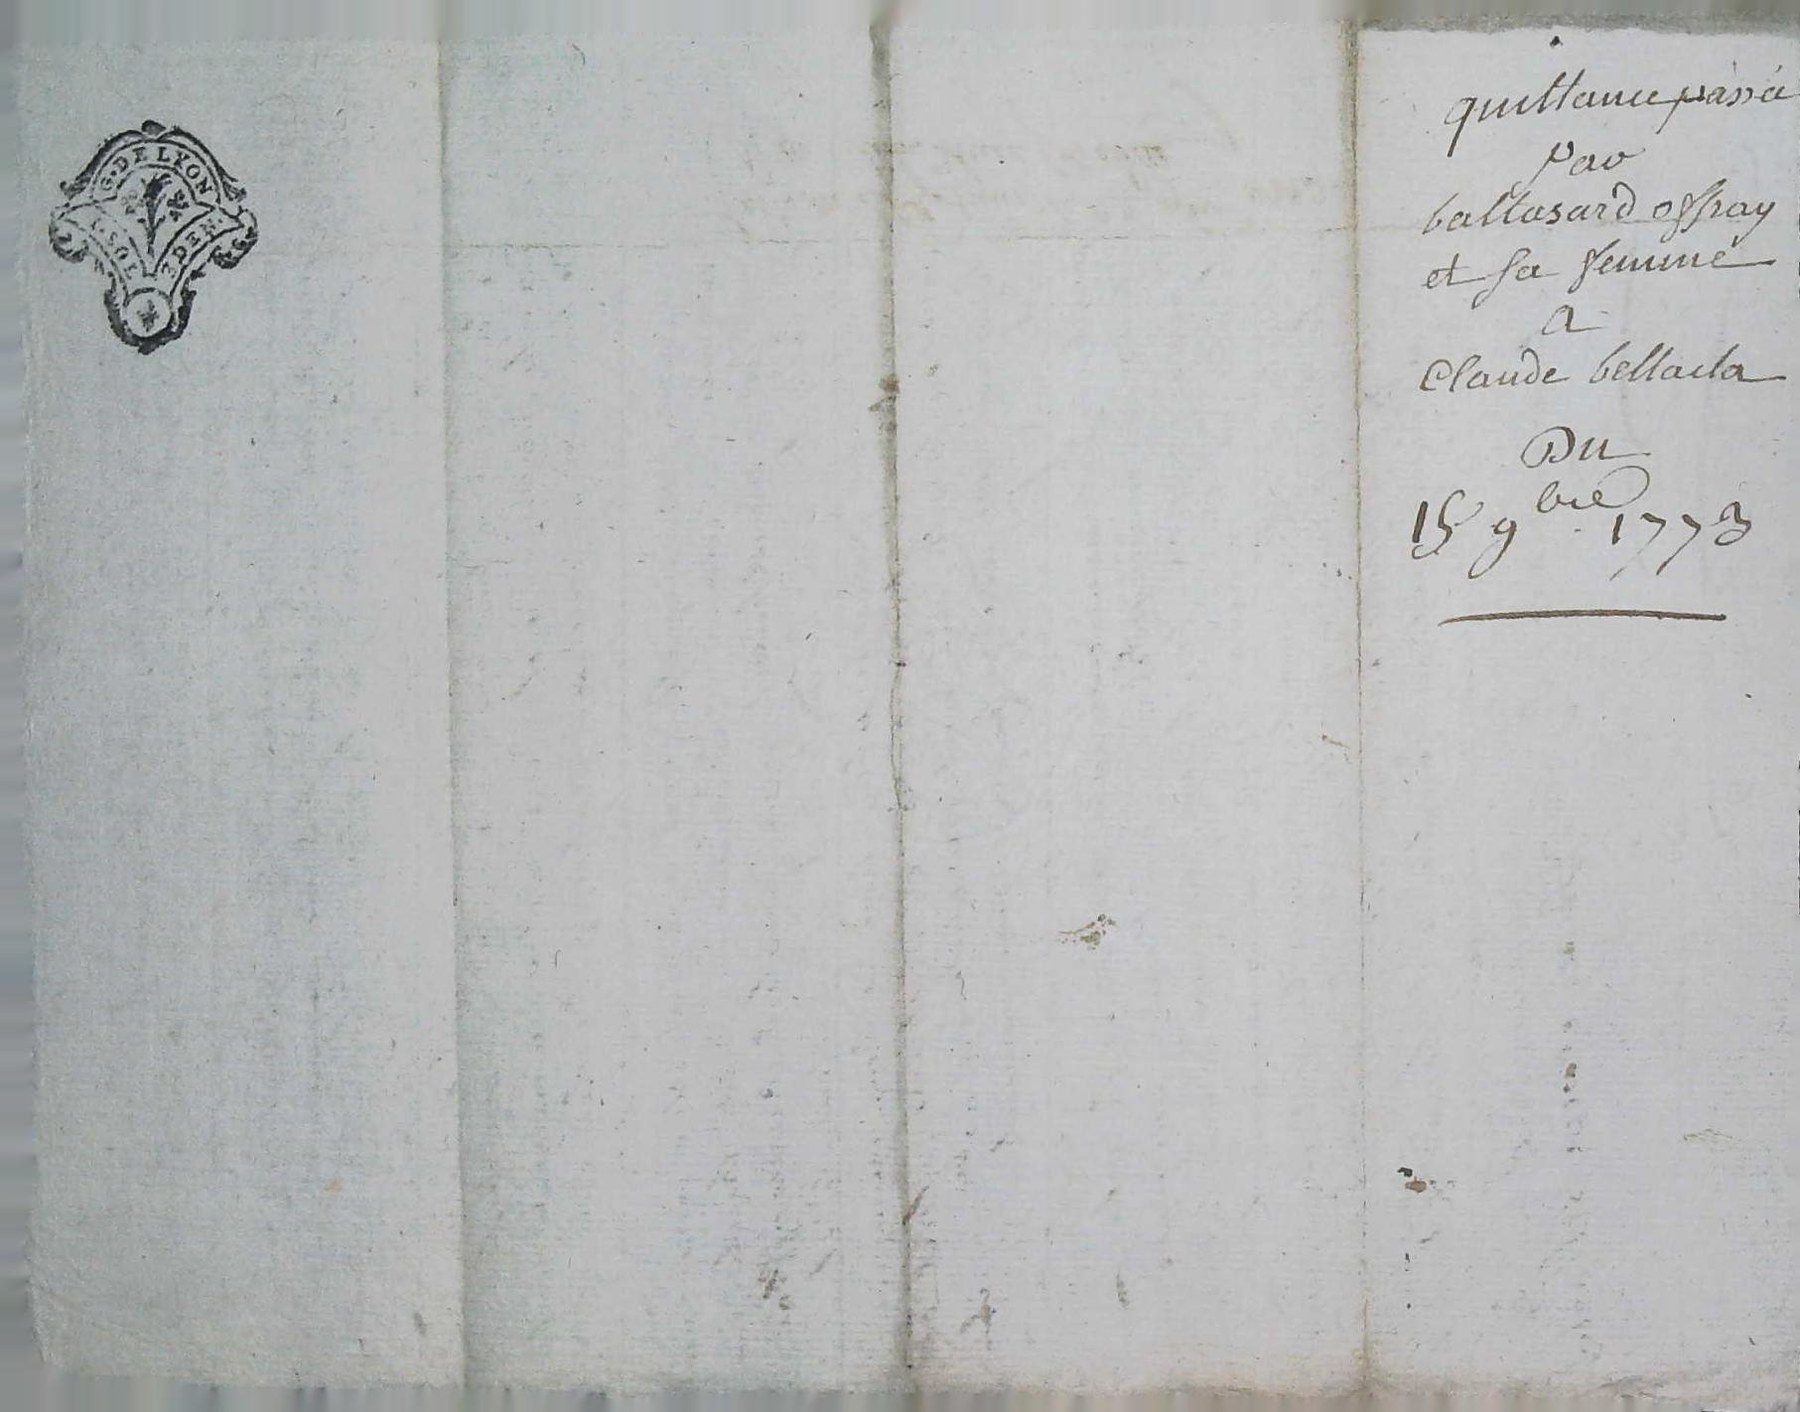 G. DE LYON
1. SOL 3 DEN.
quittance passé
par
baltasard offray
et sa femme
a
Claude bellacla
Du
15 9bre 1773